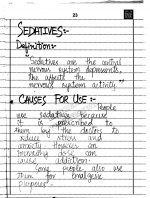 23
SEDATIVES:-
Definition:-
"Sedatives are the central
nervous system depressants,
the affects the
nervous system activity."
• CAUSES FOR USE :-
People
use sedative because
it is prescribed to
them by the doctors to
reduce stress and
anxiety. However an
dose can
cause addiction.
Some people also use
them for analgesic
purposes.